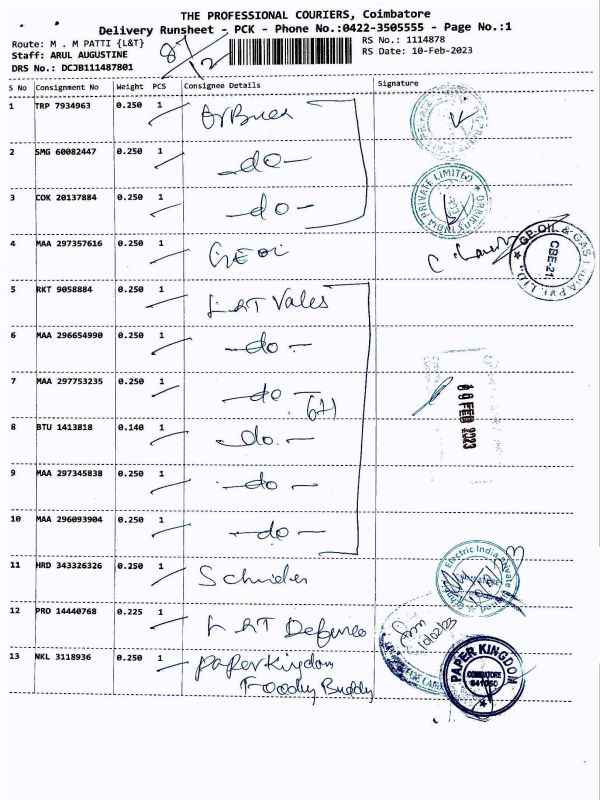 THE PROFESSIONAL COURIERS, Coimbatore
Delivery Runsheet - PCK - Phone No.:0422-3505555 - Page No.:1
Route: M . M PATTI {L&T}
RS No.: 1114878
Staff: ARUL AUGUSTINE
RS Date: 10-Feb-2023
DRS No.: DCJB111487801
8/12
S No Consignment No Weight PCS Consignee Details Signature
1 TRP 7934963 0.250 1
2 SMG 60082447 0.250 1 -do-
3 COK 20137884 0.250 1 -do-
PRIVATE LIMITED
4 MAA 297357616 0.250 1
GP OIL & GAS INDIA PVT. LTD
CBE-21
5 RKT 9058884 0.250 1 L&T Vales
6 MAA 296654990 0.250 1 -do-
7 MAA 297753235 0.250 1 -do-
FEB 2023
8 BTU 1413818 0.140 1 -do-
9 MAA 297345838 0.250 1 -do-
10 MAA 296093904 0.250 1 -do-
11 HRD 343326326 0.250 1
Electric India Private Limited
12 PRO 14440768 0.225 1 L&T Defence
13 NKL 3118936 0.250 1 Paper Kingdom
Foody Buddy
PAPER KINGDOM
COIMBATORE